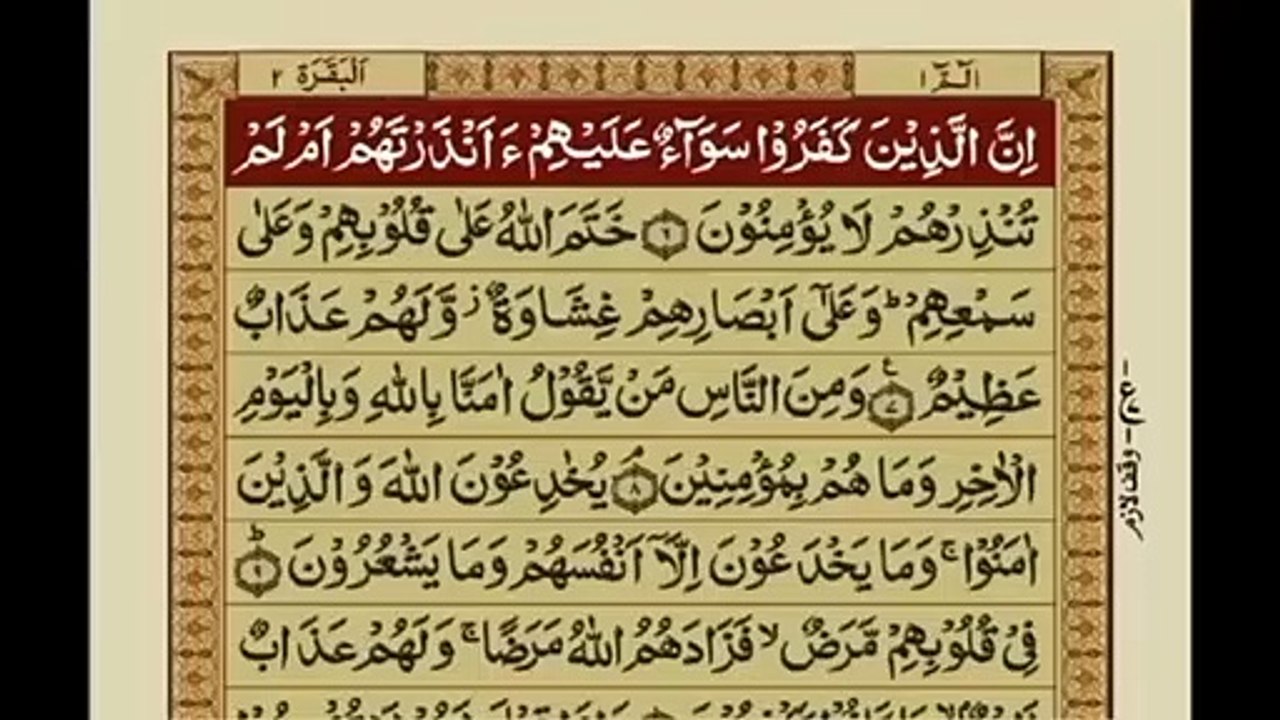 الٓمّٓ ١ اَلْبَقَرَة ٢
اِنَّ الَّذِيْنَ كَفَرُوْا سَوَآءٌ عَلَيْهِمْ ءَاَنْذَرْتَهُمْ اَمْ لَمْ
تُنْذِرْهُمْ لَا يُؤْمِنُوْنَ ۝٦ خَتَمَ اللّٰهُ عَلٰى قُلُوْبِهِمْ وَعَلٰى
سَمْعِهِمْ ؕ وَعَلٰٓى اَبْصَارِهِمْ غِشَاوَةٌ ز وَّلَهُمْ عَذَابٌ
عَظِيْمٌ ۝٧ ع وَمِنَ النَّاسِ مَنْ يَّقُوْلُ اٰمَنَّا بِاللّٰهِ وَبِالْيَوْمِ
الْاٰخِرِ وَمَا هُمْ بِمُؤْمِنِيْنَ ۝٨ۘ يُخٰدِعُوْنَ اللّٰهَ وَالَّذِيْنَ
اٰمَنُوْا ۚ وَمَا يَخْدَعُوْنَ اِلَّاۤ اَنْفُسَهُمْ وَمَا يَشْعُرُوْنَ ۝٩ؕ
فِيْ قُلُوْبِهِمْ مَّرَضٌ ۙ فَزَادَهُمُ اللّٰهُ مَرَضًا ۚ وَلَهُمْ عَذَابٌ
وقف لازم